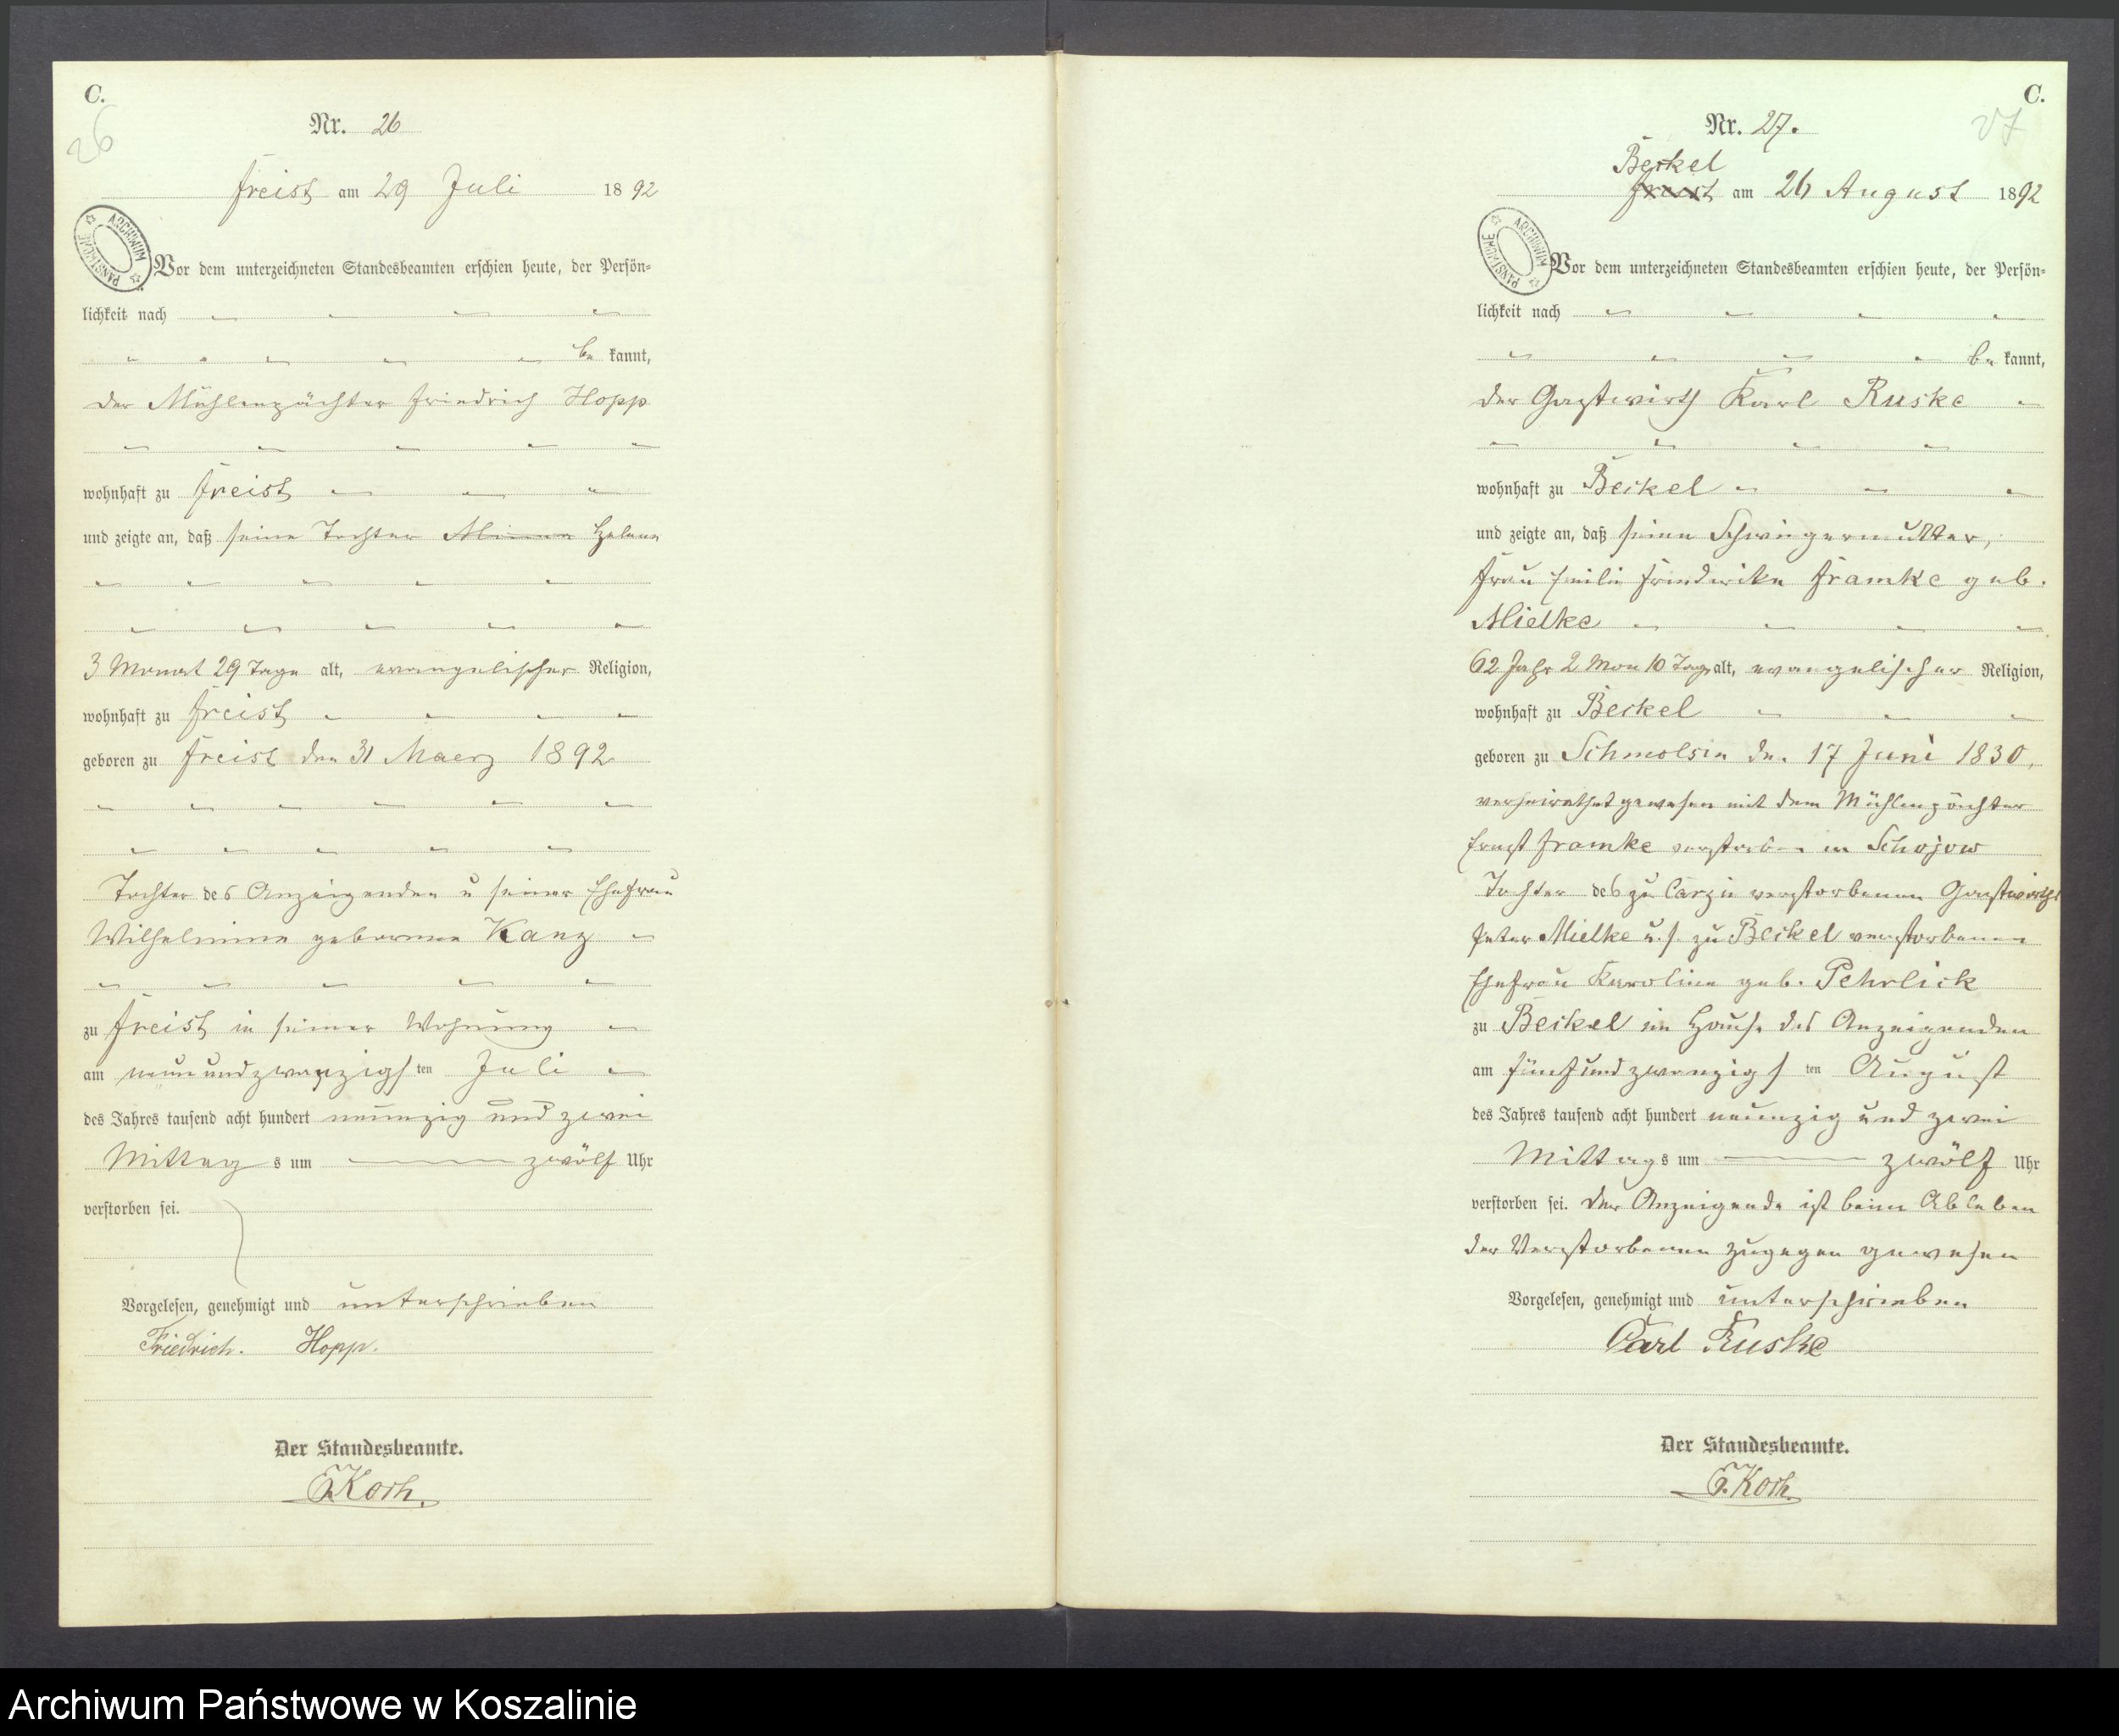 C.
26
Nr. 26
Freist am 29 Juli 1892
ARCHIWUM PAŃSTWOWE
Vor dem unterzeichneten Standesbeamten erschien heute, der Persön-
lichkeit nach
be kannt,
der Mühlenpächter Friedrich Hopp
wohnhaft zu Freist
und zeigte an, daß seine Tochter Minna Helene
3 Monat 29 Tage alt, evangelischer Religion,
wohnhaft zu Freist
geboren zu Freist den 31 Maerz 1892
Tochter des Anzeigenden u seiner Ehefrau
Wilhelmine geborene Kanz
zu Freist in seiner Wohnung
am neunundzwanzigsten Juli
des Jahres tausend acht hundert neunzig und zwei
Mittags um zwölf Uhr
verstorben sei.
Vorgelesen, genehmigt und unterschrieben
Friedrich. Hopp.
Der Standesbeamte.
Koch.
C.
27
Nr. 27.
Beckel
Freist am 26 August 1892
ARCHIWUM PAŃSTWOWE
Vor dem unterzeichneten Standesbeamten erschien heute, der Persön-
lichkeit nach
be kannt,
der Gastwirth Karl Ruske
wohnhaft zu Beckel
und zeigte an, daß seine Schwiegermutter,
Frau Emilie Friederike Framke geb.
Mielke
62 Jahr 2 Mon 10 Tage alt, evangelischer Religion,
wohnhaft zu Beckel
geboren zu Schmolsin den 17 Juni 1830,
verheirathet gewesen mit dem Mühlenpächter
Ernst Framke verstorben in Schojow
Tochter des zu Carzin verstorbenen Gastwirths
Peter Mielke u. s. zu Beckel verstorbenen
Ehefrau Karoline geb. Pehrlick
zu Beckel im Hause des Anzeigenden
am fünfundzwanzigsten August
des Jahres tausend acht hundert neunzig und zwei
Mittags um zwölf Uhr
verstorben sei. Der Anzeigende ist beim Ableben
der Verstorbenen zugegen gewesen
Vorgelesen, genehmigt und unterschrieben
Carl Ruske
Der Standesbeamte.
G. Koch.
Archiwum Państwowe w Koszalinie